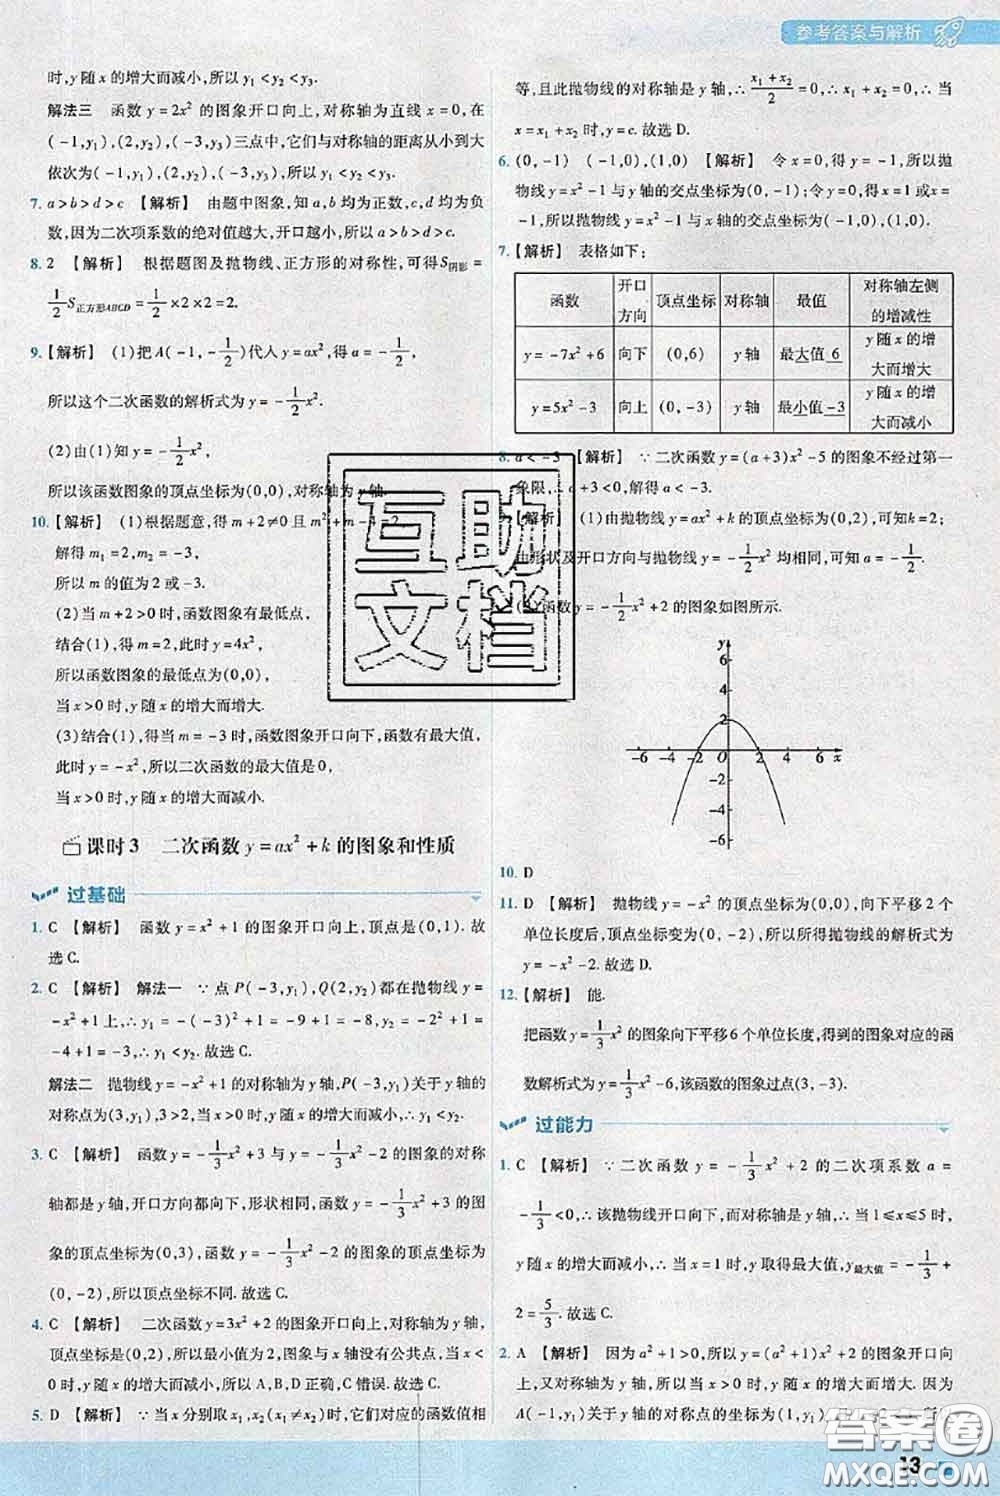 参考答案与解析
时,y随x的增大而减小,所以y₁<y₂<y₃.
解法三 函数y=2x²的图象开口向上,对称轴为直线x=0,在
(-1,y₁),(2,y₂),(-3,y₃)三点中,它们与对称轴的距离从小到大
依次为(-1,y₁),(2,y₂),(-3,y₃),所以y₁<y₂<y₃.
7. a>b>d>c 【解析】 由题中图象,知a,b均为正数,c,d均为负
数,因为二次项系数的绝对值越大,开口越小,所以a>b>d>c.
8. 2 【解析】 根据题图及抛物线、正方形的对称性,可得S阴影=
1/2 S正方形ABCD=1/2×2×2=2.
9.【解析】 (1)把A(-1,-1/2)代入y=ax²,得a=-1/2,
所以这个二次函数的解析式为y=-1/2x².
(2)由(1)知y=-1/2x²,
所以该函数图象的顶点坐标为(0,0),对称轴为y轴.
10.【解析】 (1)根据题意,得m+2≠0且m²+m-4=2,
解得m₁=2,m₂=-3,
所以m的值为2或-3.
(2)当m+2>0时,函数图象有最低点,
结合(1),得m=2,此时y=4x²,
所以函数图象的最低点为(0,0),
当x>0时,y随x的增大而增大.
(3)结合(1),得当m=-3时,函数图象开口向下,函数有最大值,
此时y=-x²,所以二次函数的最大值是0,
当x>0时,y随x的增大而减小.
课时3 二次函数y=ax²+k的图象和性质
过基础
1. C 【解析】 函数y=x²+1的图象开口向上,顶点是(0,1).故
选C.
2. C 【解析】 解法一 ∵点P(-3,y₁),Q(2,y₂)都在抛物线y=
-x²+1上,∴y₁=-(-3)²+1=-9+1=-8,y₂=-2²+1=
-4+1=-3,∴y₁<y₂.故选C.
解法二 抛物线y=-x²+1的对称轴为y轴,P(-3,y₁)关于y轴的
对称点为(3,y₁),3>2,当x>0时,y随x的增大而减小,∴y₁<y₂.
3. C 【解析】 函数y=-1/3x²+3与y=-1/3x²-2的图象的对称
轴都是y轴,开口方向都向下,形状相同,函数y=-1/3x²+3的图
象的顶点坐标为(0,3),函数y=-1/3x²-2的图象的顶点坐标为
(0,-2),所以顶点坐标不同.故选C.
4. C 【解析】 二次函数y=3x²+2的图象开口向上,对称轴为y轴,
顶点坐标是(0,2),所以最小值为2,图象与x轴没有公共点,当x<
0时,y随x的增大而减小,所以A,B,D正确,C错误.故选C.
5. D 【解析】 ∵当x分别取x₁,x₂(x₁≠x₂)时,它们对应的函数值相
等,且此抛物线的对称轴是y轴,∴(x₁+x₂)/2=0,∴x₁+x₂=0,∴当
x=x₁+x₂时,y=c.故选D.
6. (0,-1) (-1,0),(1,0) 【解析】 令x=0,得y=-1,所以抛
物线y=x²-1与y轴的交点坐标为(0,-1);令y=0,得x=1或x=
-1,所以抛物线y=x²-1与x轴的交点坐标为(-1,0),(1,0).
7.【解析】 表格如下:
函数 开口方向 顶点坐标 对称轴 最值 对称轴左侧的增减性
y=-7x²+6 向下 (0,6) y轴 最大值6 y随x的增大而增大
y=5x²-3 向上 (0,-3) y轴 最小值-3 y随x的增大而减小
8. a<-3 【解析】 ∵二次函数y=(a+3)x²-5的图象不经过第一
象限,∴a+3<0,解得a<-3.
【解析】 (1)由抛物线y=ax²+k的顶点坐标为(0,2),可知k=2;
由形状及开口方向与抛物线y=-1/2x²均相同,可知a=-1/2.
(2)函数y=-1/2x²+2的图象如图所示.
y
6
4
2
-6 -4 -2 O 2 4 6 x
-2
-4
-6
10. D
11. D 【解析】 抛物线y=-x²的顶点坐标为(0,0),向下平移2个
单位长度后,顶点坐标变为(0,-2),所以所得抛物线的解析式为
y=-x²-2.故选D.
12.【解析】 能.
把函数y=1/3x²的图象向下平移6个单位长度,得到的图象对应的函
数解析式为y=1/3x²-6,该函数的图象过点(3,-3).
过能力
1. C 【解析】 ∵二次函数y=-1/3x²+2的二次项系数a=
-1/3<0,∴该抛物线开口向下,而对称轴为y轴,∴当1≤x≤5时,
y随x的增大而减小,∴当x=1时,y取得最大值,y最大值=-1/3+
2=5/3.故选C.
2. A 【解析】 因为a²+1>0,所以y=(a²+1)x²+2的图象开口向
上,又对称轴为y轴,所以当x>0时,y随x的增大而增大.因为
A(-1,y₁)关于y轴的对称点的坐标为(1,y₁),
互助
文档
答案圈
MXQE.COM